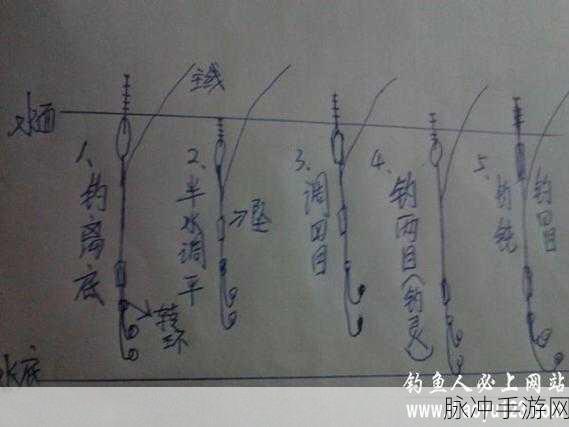 主线
水面
1、钓离底
2、半水调平
坠
3、调四目
4、钓两目(钓灵)
5、钓钝
钓四目
转环
水底
钓鱼人必上网站
脉冲手游网